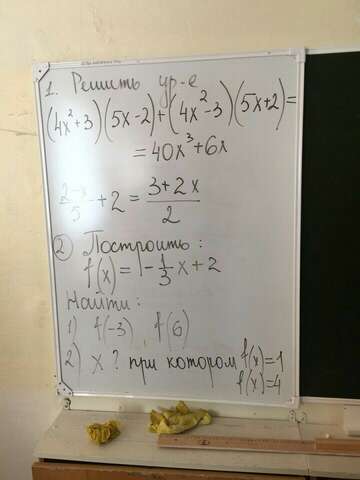 1. Решить ур-е
(4x²+3)(5x-2)+(4x²-3)(5x+2)=
=40x³+6x
2-x/5 +2 = 3+2x/2
2 Построить:
f(x)=-1/3x+2
Найти:
1) f(-3) f(6)
2) x? при котором f(x)=1
f(x)=4